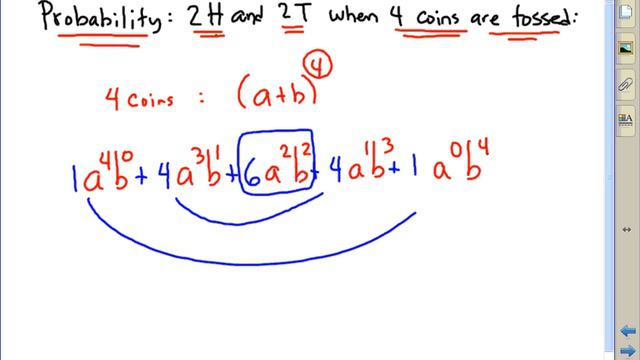 Probability: 2H and 2T when 4 coins are tossed:
4 coins : (a+b)⁴
1a⁴b⁰ + 4a³b¹ + 6a²b² + 4a¹b³ + 1 a⁰b⁴